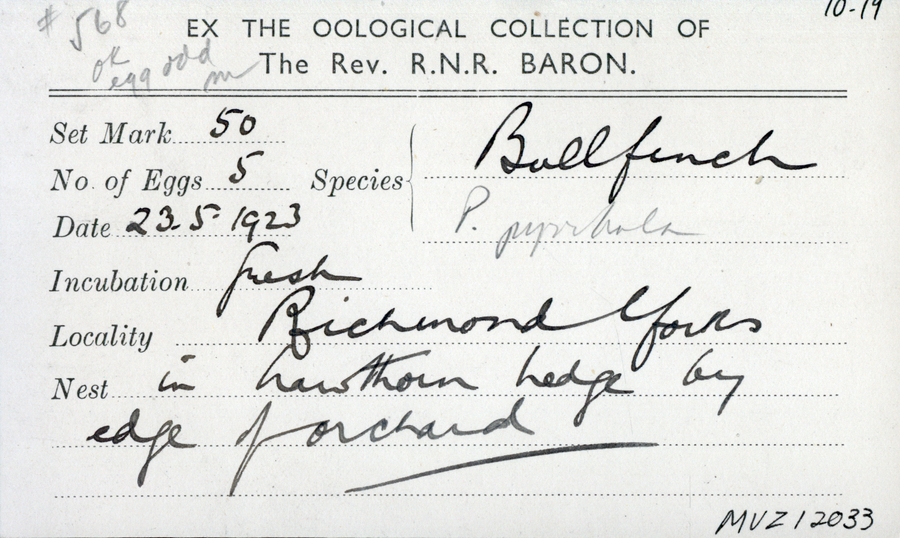 10-19
# 568
ok egg odd m
EX THE OOLOGICAL COLLECTION OF
The Rev. R.N.R. BARON.
Set Mark 50
No. of Eggs 5 Species Bullfinch
P. pyrrhula
Date 23-5-1923
Incubation fresh
Locality Richmond Yorks
Nest in hawthorn hedge by
edge of orchard
MVZ12033